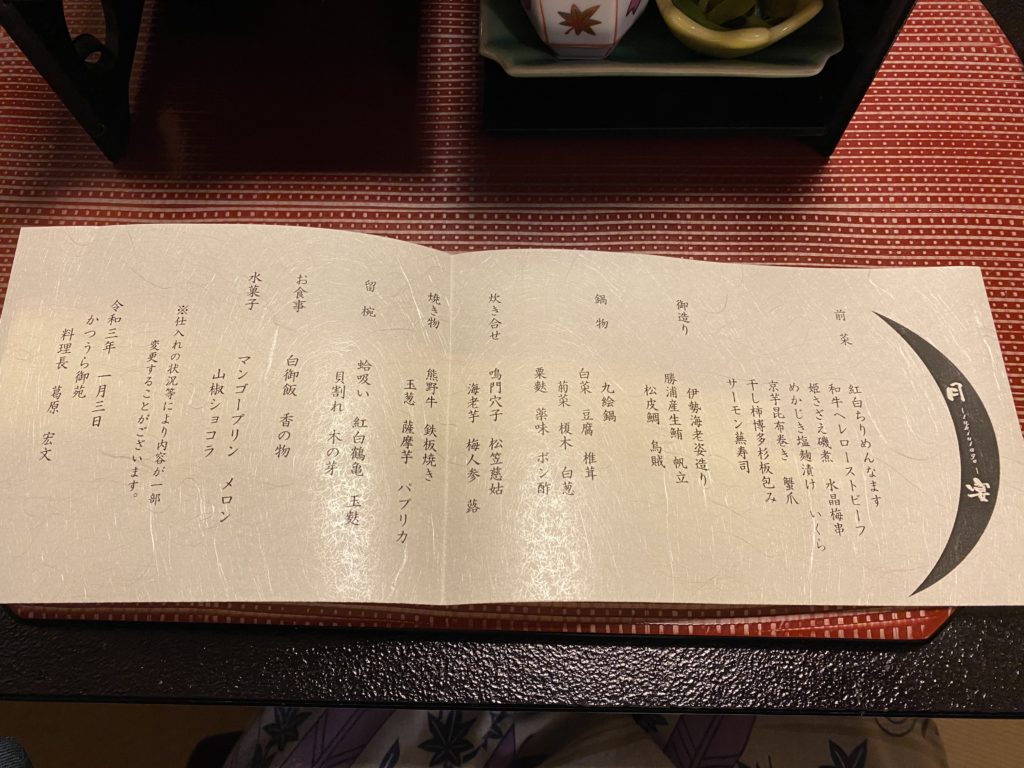 月
宴
前菜
紅白ちりめんなます
和牛ヘレローストビーフ
姫さざえ磯煮 水晶梅串
めかじき塩麹漬け いくら
京芋昆布巻き 蟹爪
干し柿博多杉板包み
サーモン蕪寿司
御造り
伊勢海老姿造り
勝浦産生鮪 帆立
松皮鯛 烏賊
鍋物
九絵鍋
白菜 豆腐 椎茸
菊菜 榎木 白葱
粟麩 薬味 ポン酢
炊き合せ
鳴門穴子 松笠慈姑
海老芋 梅人参 蕗
焼き物
熊野牛 鉄板焼き
玉葱 薩摩芋 パプリカ
留椀
蛤吸い 紅白鶴亀 玉麩
貝割れ 木の芽
お食事
白御飯 香の物
水菓子
マンゴープリン メロン
山椒ショコラ
※仕入れの状況等により内容が一部
変更することがございます。
令和三年 一月三日
かつうら御苑
料理長 葛原 宏文